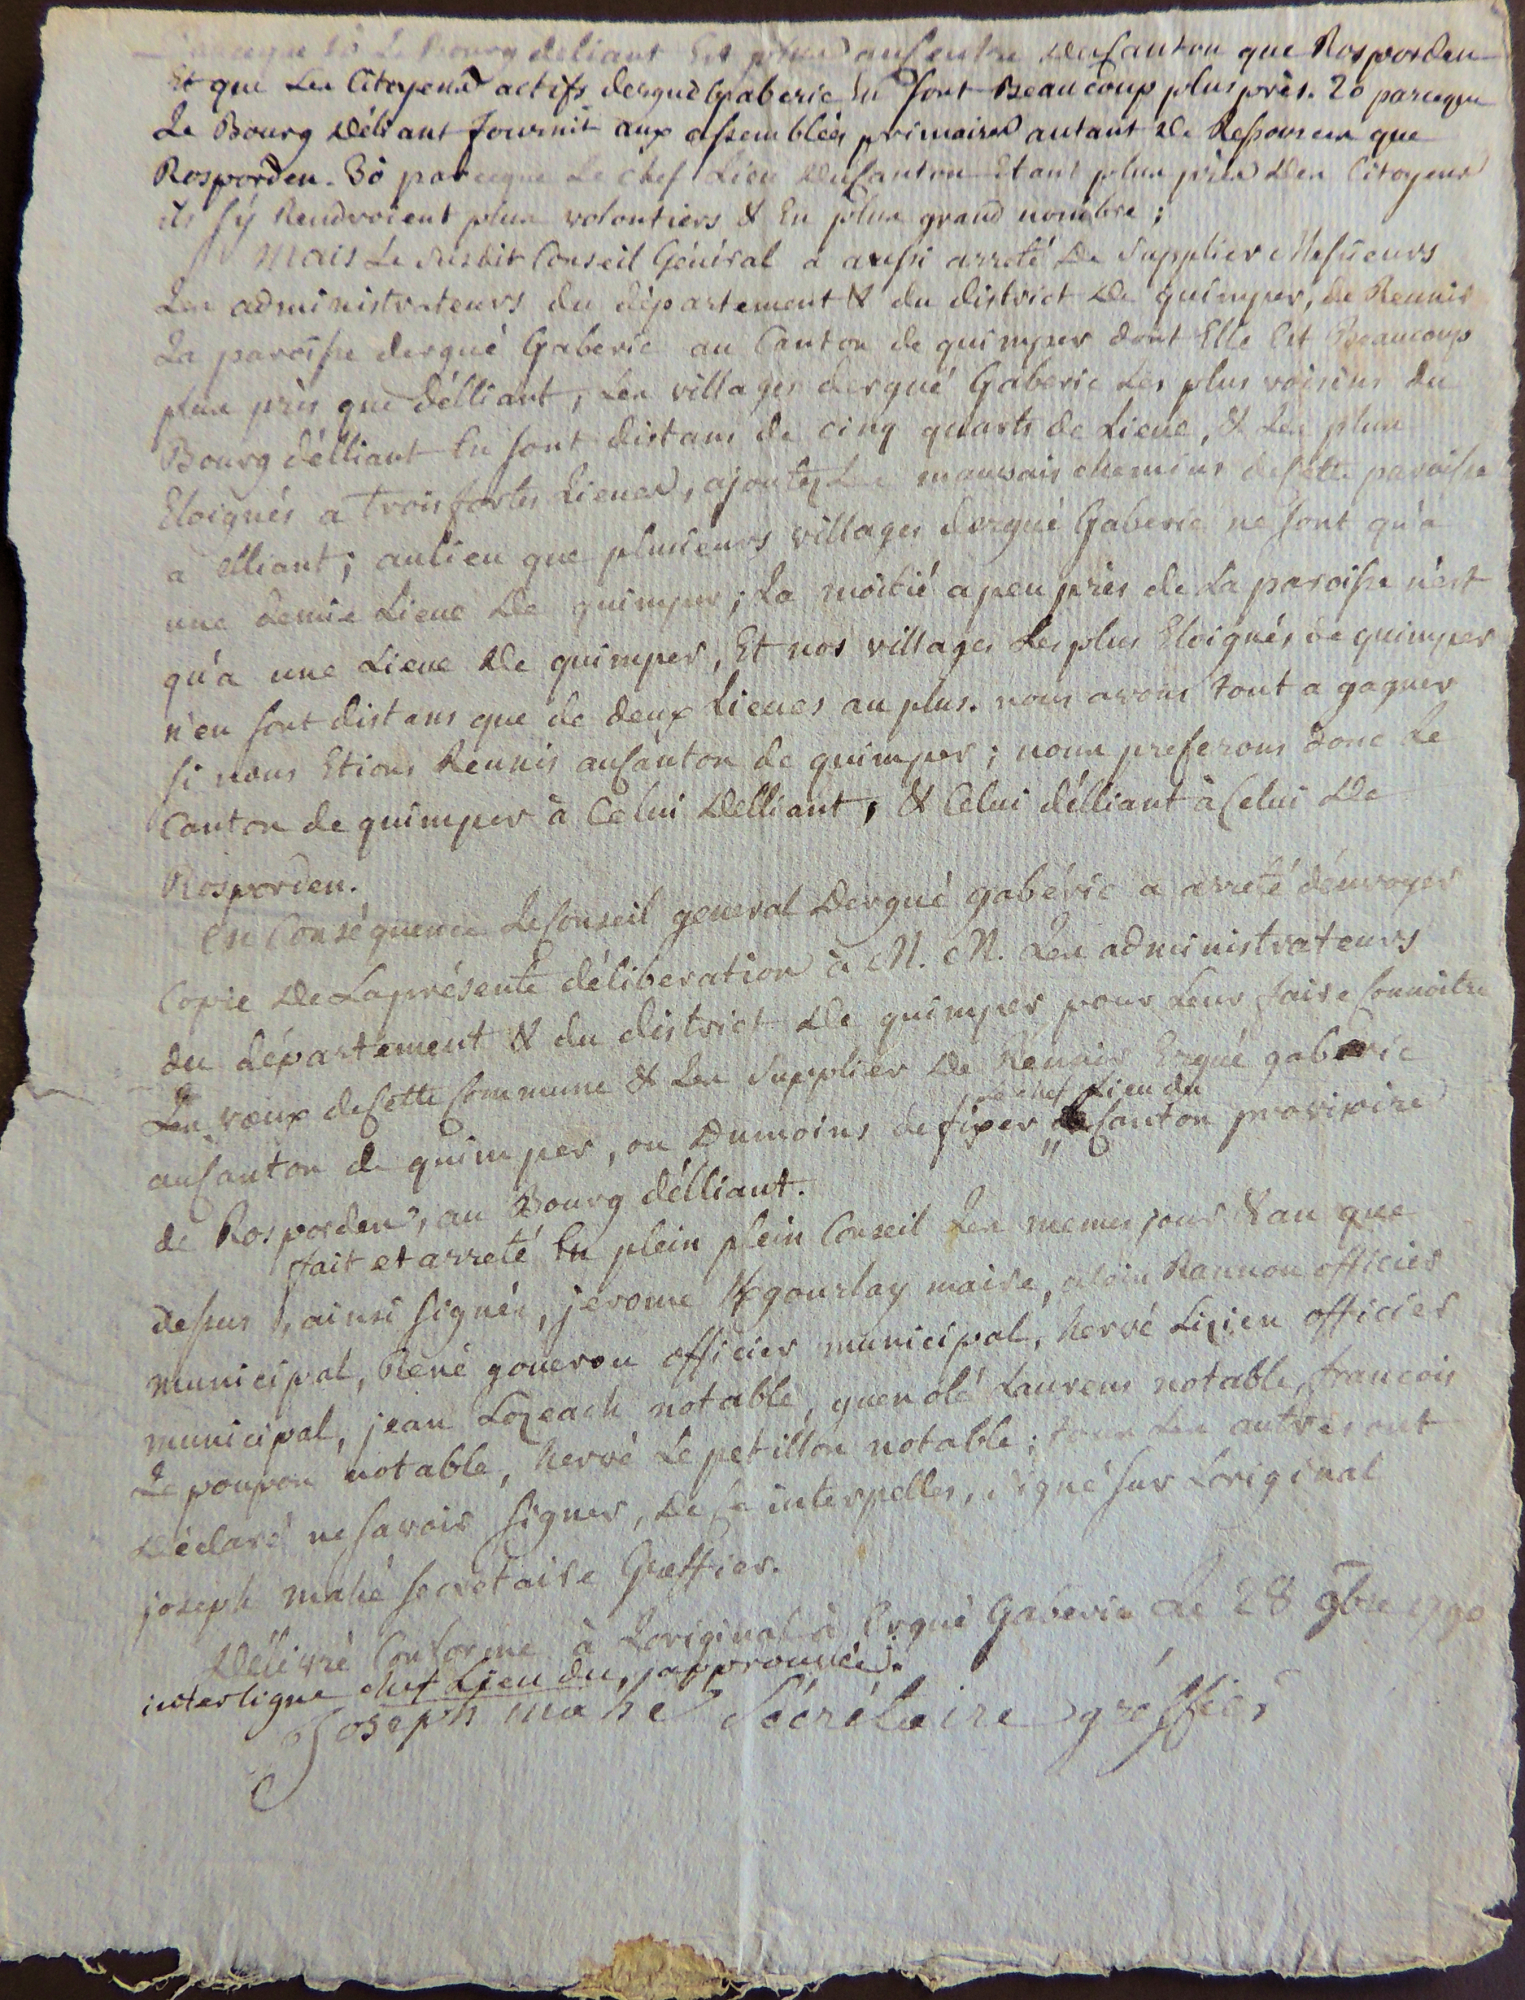 parceque 1o Le Bourg deliant Est plus au Centre du Canton que Rosporden
Et que Les Citoyens actifs dergué Gaberic En sont Beaucoup plus près. 2o parceque
Le Bourg déliant fournit aux assemblées primaires autant de Ressources que
Rosporden. 3o parceque Le chef Lieu du Canton Etant plus près des Citoyens
ils s'y Rendroient plus volontiers & En plus grand nombre ;
Mais Le susdit Conseil Général a aussi arreté de supplier Messieurs
Les administrateurs du département & du district de quimper, de Reunir
La paroisse dergué Gaberic au Canton de quimper dont Elle Est Beaucoup
plus près que délliant, Les villages dergué Gaberic Les plus voisins du
Bourg délliant En sont distans de cinq quarts de Lieue, & Les plus
Eloignés a trois fortes Lieues, ajoutez Les mauvais chemins de Cette paroisse
a elliant ; aulieu que plusieurs villages dergué Gaberic ne sont qu'a
une demie Lieue de quimper ; La moitié apeu près de La paroisse n'est
qu'a une Lieue de quimper, Et nos villages Les plus Eloignés de quimper
n'en sont distans que de deux Lieues au plus. nous avons tout a gagner
si nous Etions Reunis au Canton de quimper ; nous preferons donc Le
Canton de quimper à Celui delliant, & Celui délliant à Celui de
Rosporden.
En Conséquence Le Conseil general dergué gabéric a arreté d'envoyer
Copie de Laprésente déliberation à M. M. Les administrateurs
du département & du district de quimper pour Leur faire Connoitre
Les vœux de Cette Commune & Les supplier de Reunir Ergué gaberic
Le chef Lieu du
au Canton de quimper, ou dumoins de fixer " Canton provisoire
de Rosporden, au Bourg délliant.
fait et arreté En plein plein Conseil Les memes jour & an que
dessus, ainsi signés, jerome Kgourlay maire, alain Rannou officier
municipal, René gouerou officier municipal, hervé Lizien officier
municipal, jean Lozeach notable, guenolé Laurens notable, francois
Le poupon notable, hervé Le petillon notable ; tous Les autres ont
déclaré ne savoir signer, de Ce interpelles, signé sur Loriginal
joseph mahé secretaire Greffier.
Délivré Conforme à Loriginal à Ergué Gaberic Le 28 9bre 1790
interligne chef Lieu du, japprouvée.
Joseph mahé Sécrétaire gréffier